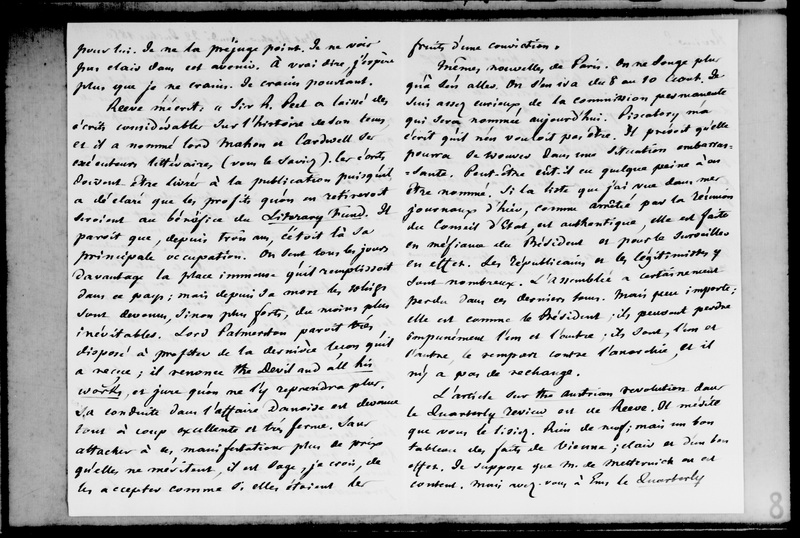 pour lui. Je ne la préjuge point. Je ne vois
pas clair dans cet avenir. À vrai dire, j'espère
plus que je ne crains. Je crains pourtant.
Reeve m'écrit : « Sir R. Peel a laissé des
écrits considérables sur l'histoire de son tems
et il a nommé lord Mahon et Cardwell ses
exécuteurs littéraires, (vous le saviez). Ces écrits
doivent être livrés à la publication puisqu'il
a déclaré que les profits qu'on en retireroit
seroient au bénéfice du Literary Fund. Il
paroît que, depuis trois ans, c'étoit là sa
principale occupation. On sent tous les jours
davantage la place immense qu'il remplissoit
dans ce pays ; mais depuis sa mort les whigs
sont devenus, sinon plus forts, du moins plus
inévitables. Lord Palmerston paroît très
disposé à profiter de la dernière leçon qu'il
a reçue ; il renonce the Devil and all his
works, et jure qu'on ne l'y reprendra plus.
Sa conduite dans l'affaire Danoise est devenue
tout à coup excellente et très ferme. Sans
attacher à ces manifestations plus de prix
qu'elles ne méritent, il est sage, je crois, de
les accepter comme si elles étoient les
fruits d'une conviction.
Mêmes nouvelles de Paris. On ne songe plus
qu'à s'en aller. On s'en ira du 8 au 10 août. Je
suis assez curieux de la commission permanente
qui sera nommée aujourd'hui. Piscatory m'a
écrit qu'il n'en vouloit pas être. Il prévoit qu'elle
pourra se trouver dans une situation embarras-
-sante. Peut-être eût-il eu quelque peine à en
être nommé. Si la liste que j'ai vue dans mes
journaux d'hier, comme arrêtée par la Réunion
du Conseil d'Etat, est authentique, elle est faite
en méfiance du Président et pour le surveiller
en effet. Les républicains et les légitimistes y
sont nombreux. L'assemblée a certainement
perdu dans ces derniers tems. Mais peu importe ;
elle est comme le Président ; ils peuvent perdre
impunément l'un et l'autre ; ils sont, l'un et
l'autre, le rempart contre l'anarchie, et il
n'y a pas de rechange.
L'article sur the Austrian revolution dans
le Quarterly review est de Reeve. Il mérite
que vous le lisiez. Rien de neuf ; mais un bon
tableau des faits de Vienne ; clair et d'un bon
effet. Je suppose que M. de Metternich en est
content. Mais avez-vous à Ems le Quarterly
8